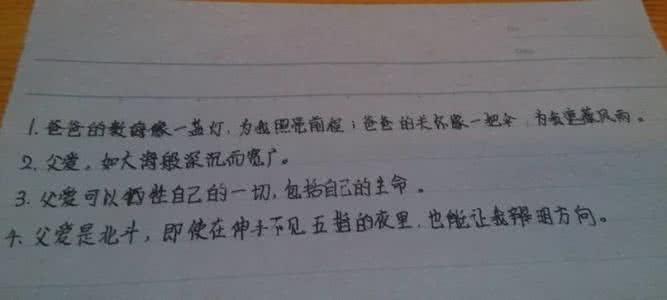 1. 爸爸的教诲像一盏灯,为我照亮前程;爸爸的关怀像一把伞,为我遮蔽风雨。
2. 父爱,如大海般深沉而宽广。
3. 父爱可以牺牲自己的一切,包括自己的生命。
4. 父爱是北斗,即使在伸手不见五指的夜里,也能让我辨明方向。